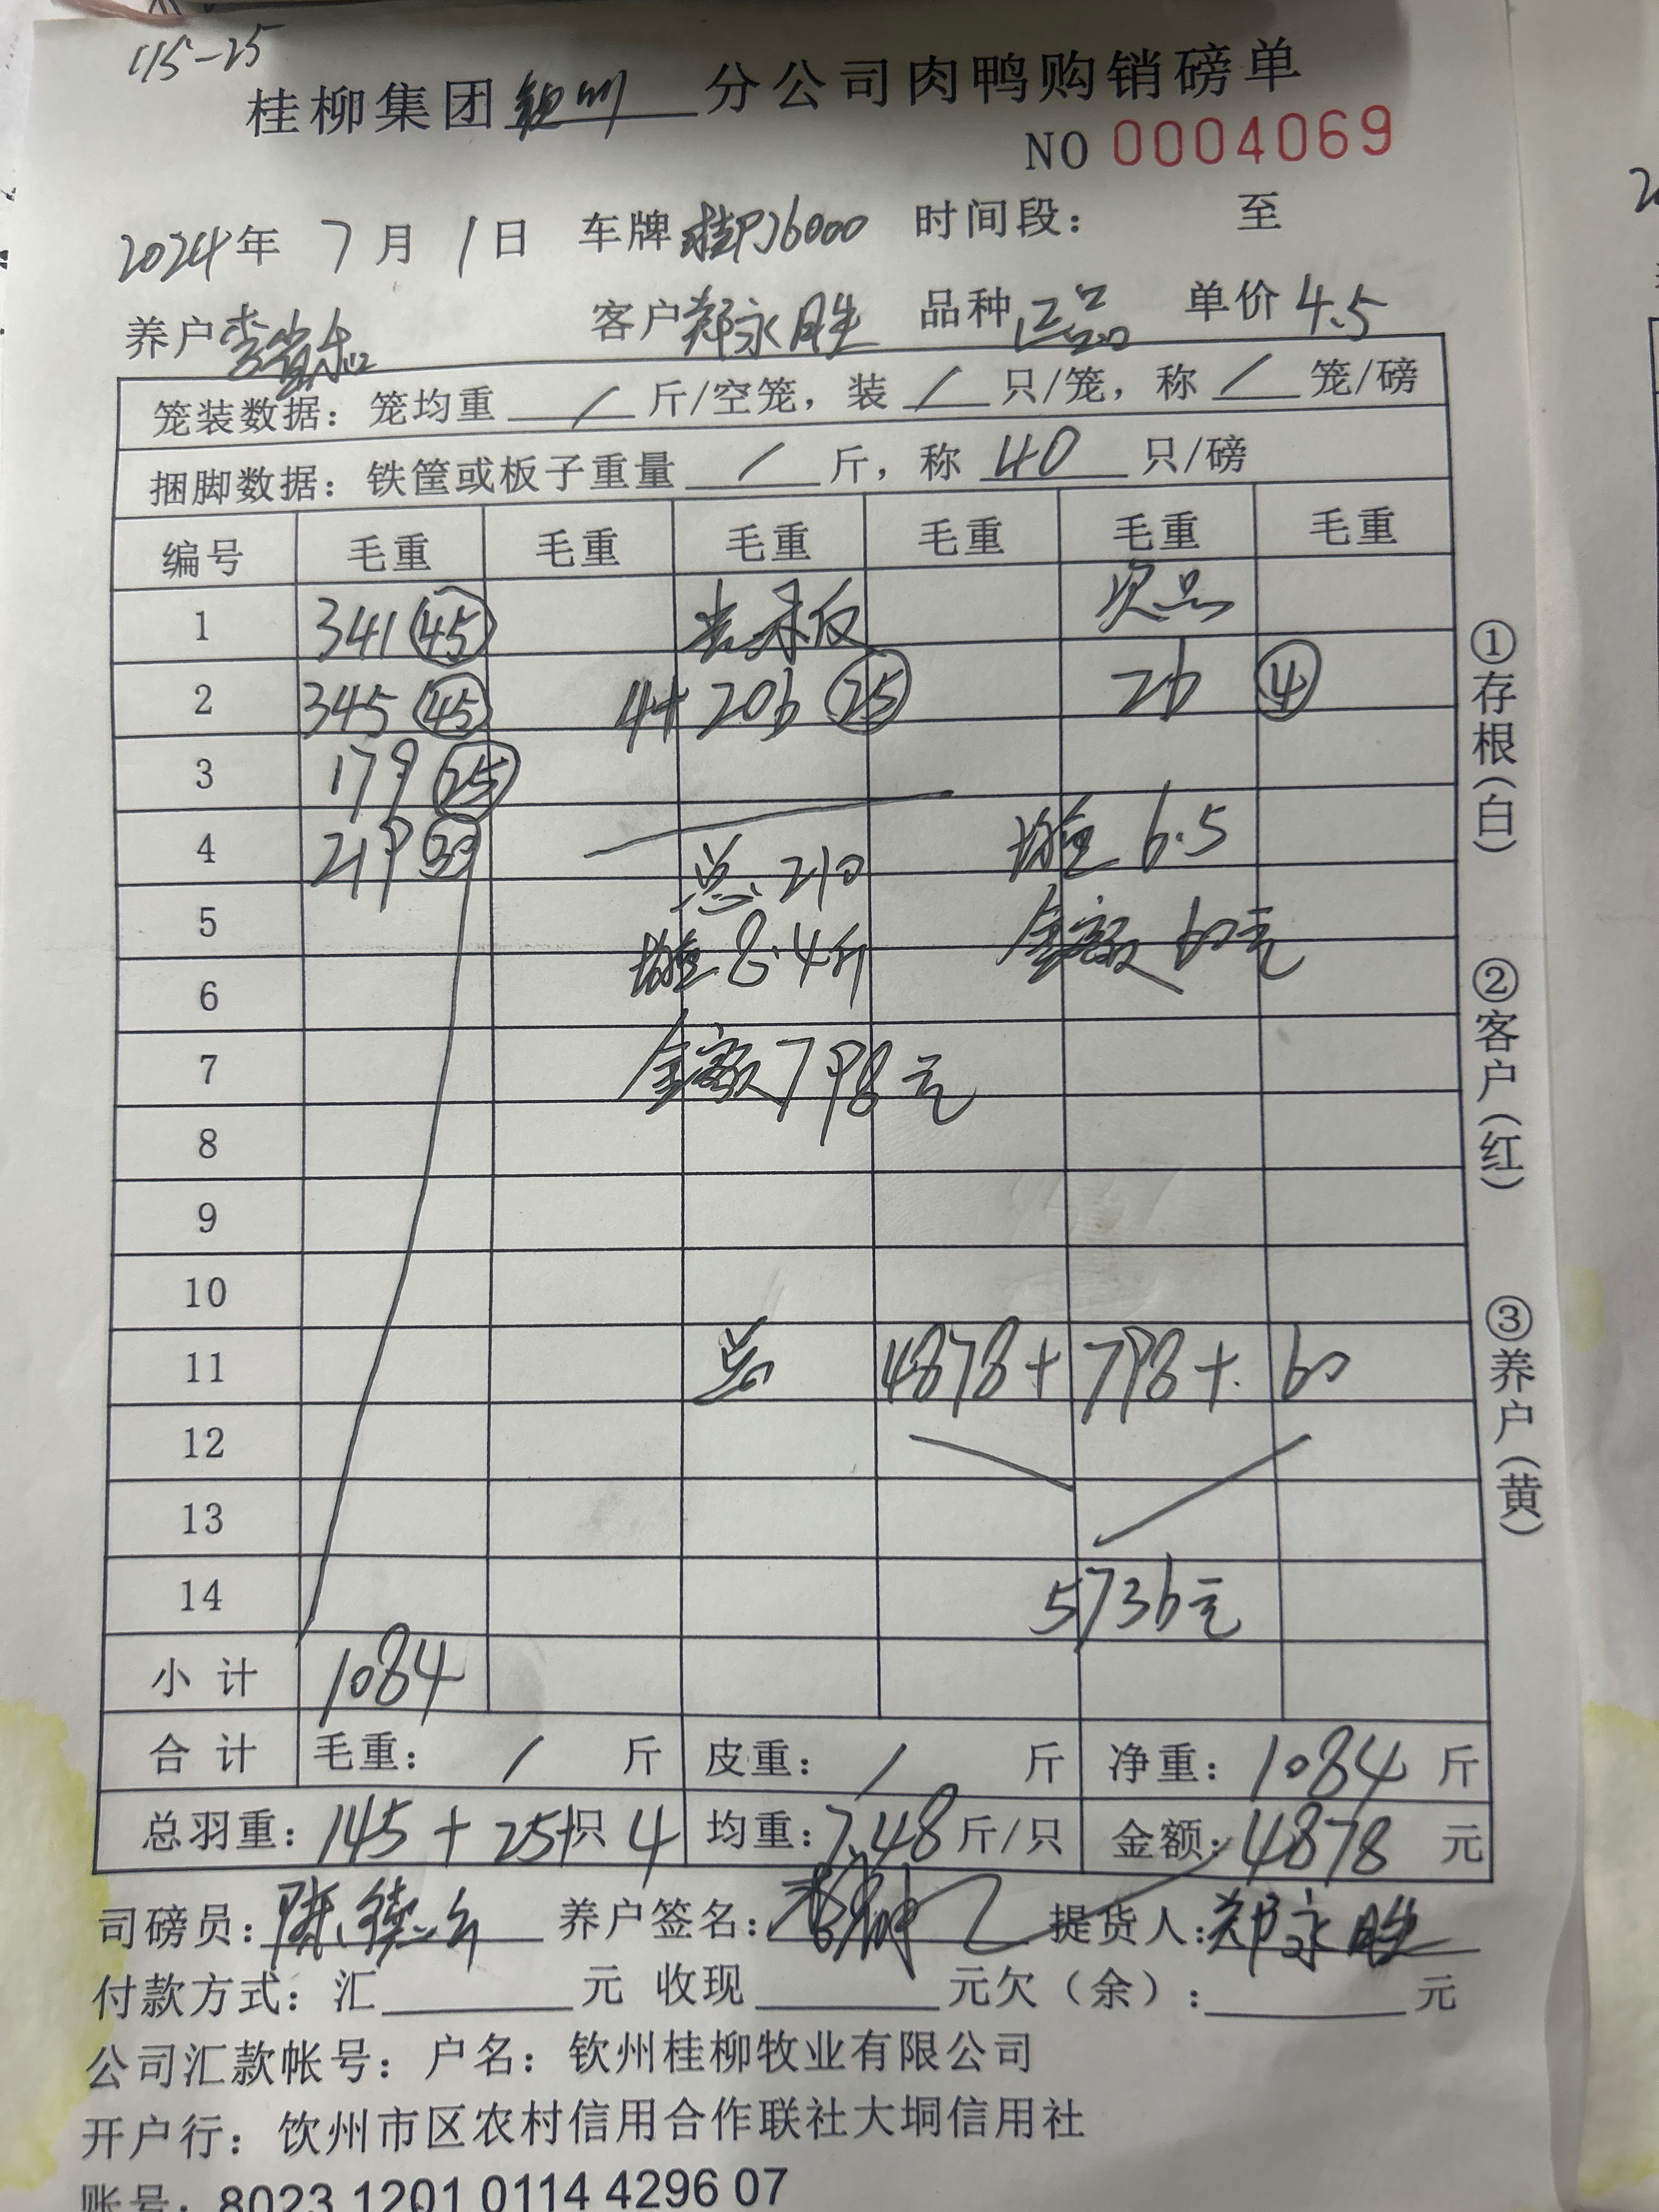 115-25
桂柳集团钦州分公司肉鸭购销磅单
NO 0004069
2024年 7月 1日 车牌桂PJ6000 时间段： 至
养户李 客户郑永胜 品种正品 单价4.5
笼装数据：笼均重 / 斤/空笼，装 / 只/笼，称 / 笼/磅
捆脚数据：铁筐或板子重量 / 斤，称 40 只/磅
编号 毛重 毛重 毛重 毛重 毛重 毛重
1 341 (45) 次品
2 345 (45) 4+206 (25) 26 (4)
3 179 (25)
4 219 (30) 总：210 均重 6.5
5 金额 60元
6 均重 8.4斤
7 金额798元
8
9
10
11 总 4878+798+60
12
13
14 5736元
小计 1084
合计 毛重： / 斤 皮重： / 斤 净重：1084斤
总羽重：145+25+只4 均重：7.48斤/只 金额：4878元
司磅员：陈德 养户签名： 提货人：郑永胜
付款方式：汇 元 收现 元欠（余）： 元
公司汇款帐号：户名：钦州桂柳牧业有限公司
开户行：钦州市区农村信用合作联社大垌信用社
账号：8023 1201 0114 4296 07
①存根（白）
②客户（红）
③养户（黄）